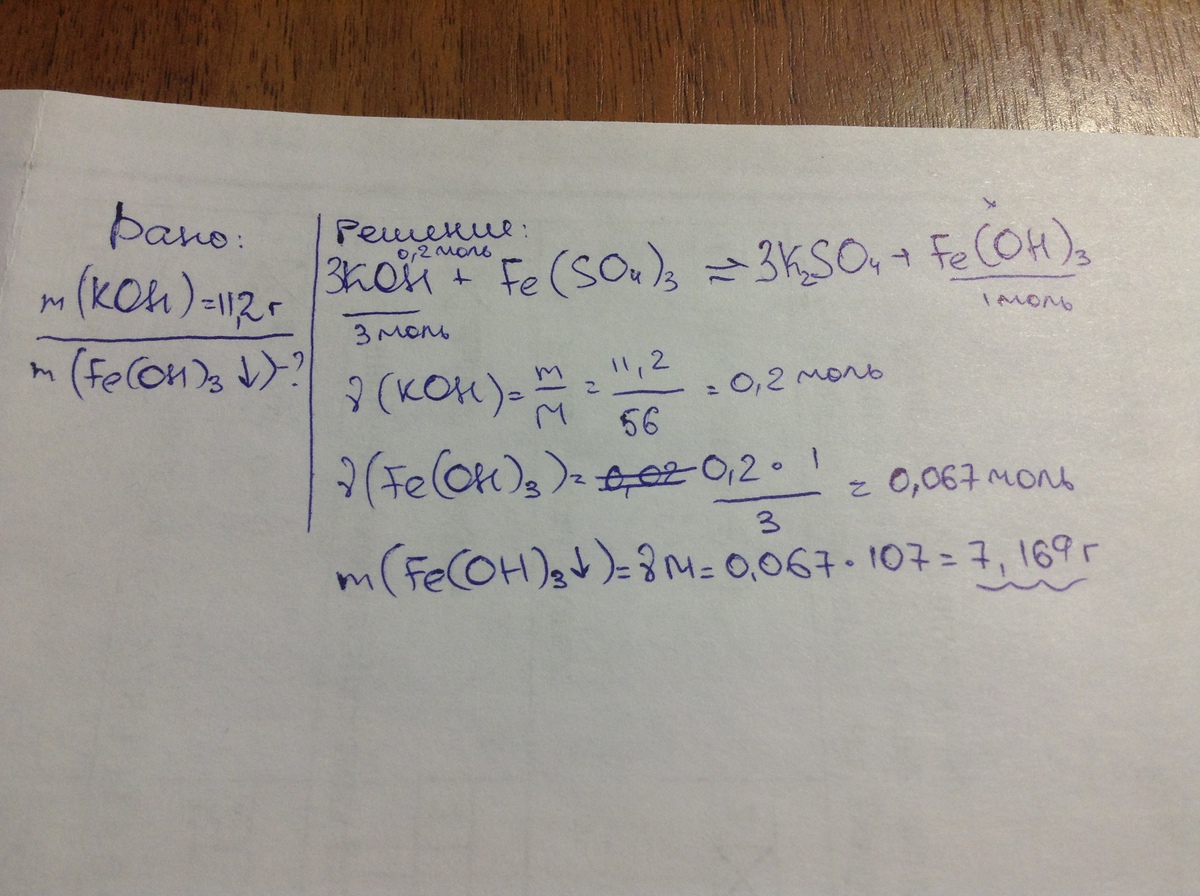 Дано:
m(KOH)=11,2 г
m(Fe(OH)₃↓)-?
Решение:
0,2 моль
x
3KOH + Fe(SO₄)₃ ⇒ 3K₂SO₄ + Fe(OH)₃
3 моль
1 моль
γ(KOH) = m/M = 11,2/56 = 0,2 моль
γ(Fe(OH)₃) = 0,02 0,2 · 1/3 = 0,067 моль
m(Fe(OH)₃↓) = γM = 0,067 · 107 = 7,169 г